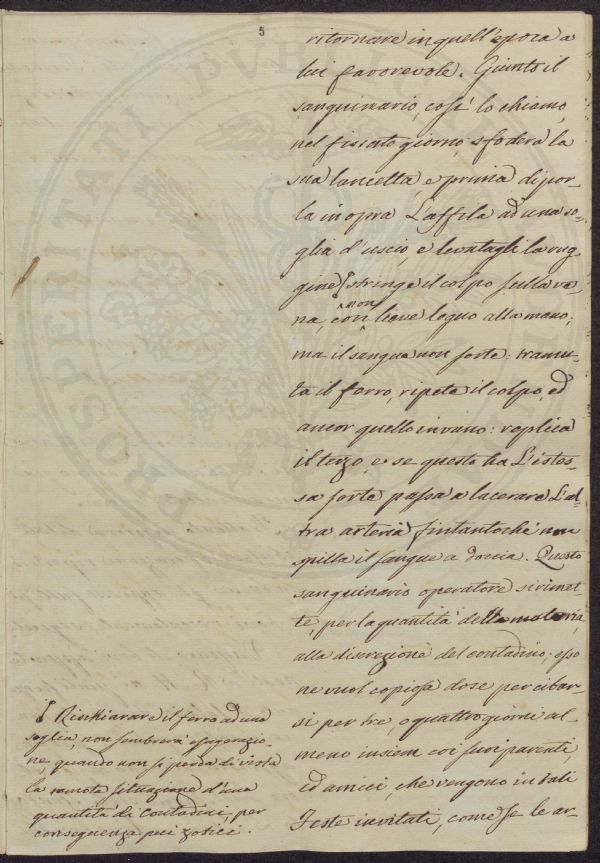 5
ritornare in quell'epoca a
lui favorevole. Giunto il
sanguinario, così lo chiamo,
nel fissato giorno, sfodera la
sua lancetta, e prima di por-
la in opra l'affila ad una so-
glia d'uscio e levatagli la rug-
gine ſ stringe il colpo sulla ve-
na, con non lieve legno alla mano,
ma il sangue non sorte: tramu-
ta il ferro, ripete il colpo, ed
ancor quello invano: replica
il terzo, e se questo ha l'istes-
sa sorte passa a lacerare l'al-
tra arteria fintantochè non
spilla il sangue a doccia. Questo
sanguinario operatore si rimet-
te, per la quantità della materia,
alla discrezione del contadino; esso
ne vuol copiosa dose per cibar-
si per tre, o quattro giorni al-
meno insiem coi suoi parenti,
ed amici, che vengono in tali
Feste invitati, come se le ar-
ſ Rischiarare il ferro ad una
soglia, non sembrerà esagerazio-
ne, quando non si perda di vista
la remota situazione d'una
quantità di Contadini, per
conseguenza più zotici.
PROSPERITATI PUBLICAE